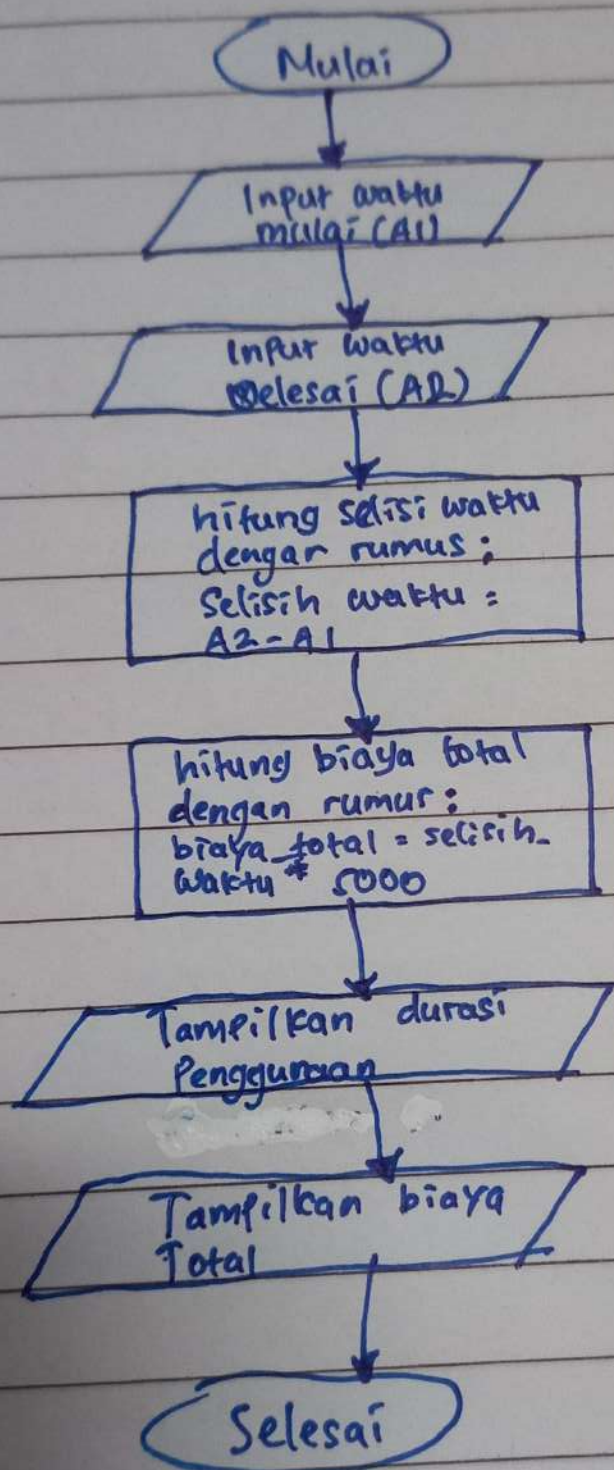 Mulai
Input waktu
mulai (A1)
Input waktu
selesai (A2)
hitung selisi waktu
dengar rumus :
Selisih waktu =
A2 - A1
hitung biaya total
dengan rumus :
biaya_total = selisih_
waktu * 5000
Tampilkan durasi
Penggunaan
Tampilkan biaya
Total
Selesai